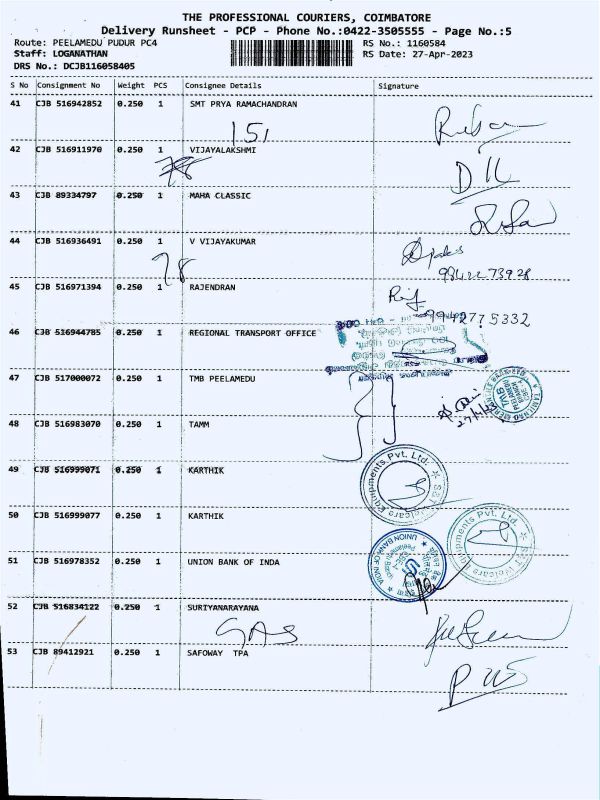 THE PROFESSIONAL COURIERS, COIMBATORE
Delivery Runsheet - PCP - Phone No.:0422-3505555 - Page No.:5
Route: PEELAMEDU PUDUR PC4 RS No.: 1160584
Staff: LOGANATHAN RS Date: 27-Apr-2023
DRS No.: DCJB116058405
S No Consignment No Weight PCS Consignee Details Signature
41 CJB 516942852 0.250 1 SMT PRYA RAMACHANDRAN
151
42 CJB 516911970 0.250 1 VIJAYALAKSHMI
43 CJB 89334797 0.250 1 MAHA CLASSIC
44 CJB 516936491 0.250 1 V VIJAYKUMAR
78
45 CJB 516971394 0.250 1 RAJENDRAN
46 CJB 516944785 0.250 1 REGIONAL TRANSPORT OFFICE
47 CJB 517000072 0.250 1 TMB PEELAMEDU
48 CJB 516983070 0.250 1 TAMM
49 CJB 516999071 0.250 1 KARTHIK
Equipments Pvt. Ltd.
50 CJB 516999077 0.250 1 KARTHIK
Equipments Pvt. Ltd.
51 CJB 516978352 0.250 1 UNION BANK OF INDA
UNION BANK OF INDIA
52 CJB 516834122 0.250 1 SURIYANARAYANA
GAS
53 CJB 89412921 0.250 1 SAFOWAY TPA